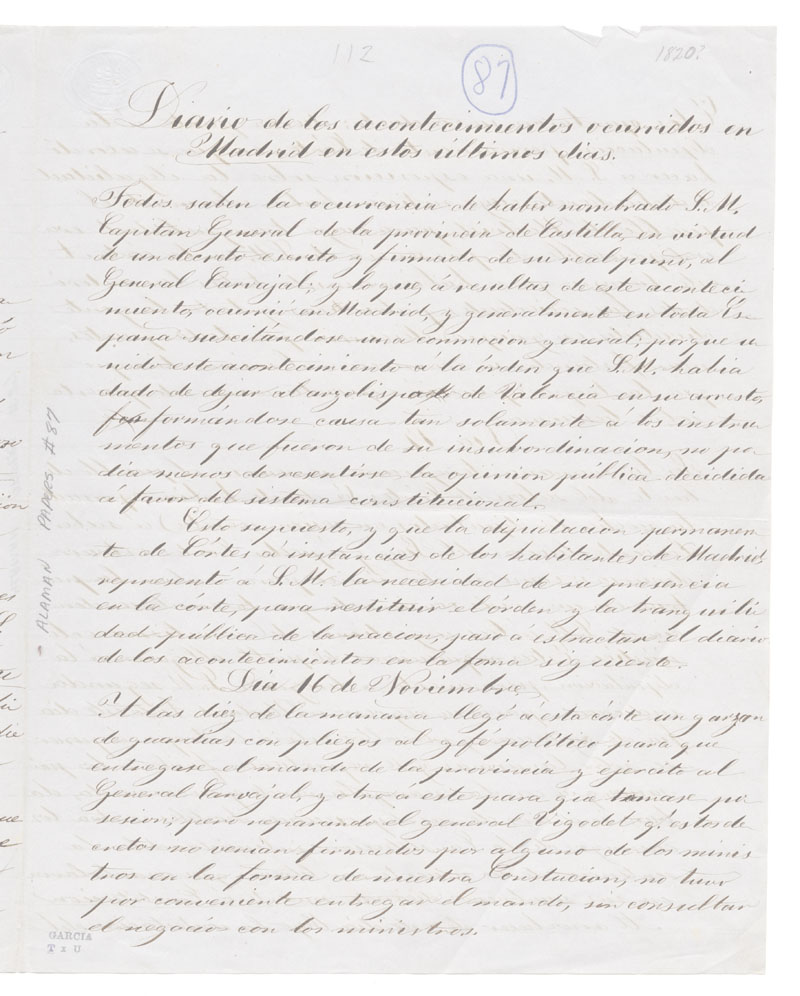 112
87
1820?
Diario de los acontecimientos ocurridos en
Madrid en estos últimos dias.
Todos saben la ocurrencia de haber nombrado S. M.
Capitan General de la provincia de Castilla, en virtud
de un decreto escrito y firmado de su real puño, al
General Carvajal; y lo que, á resultas de este aconteci
miento, ocurrió en Madrid, y generalmente en toda Es
paña suscitándose una conmocion general; porque u
nido este acontecimiento á la órden que S. M. habia
dado de dejar al arzobispado de Valencia en su arresto,
formándose causa tan solamente á los instru
mentos que fueron de su insubordinacion, no po
dia menos de resentirse la opinion pública decidida
á favor del sistema constitucional.
Esto supuesto, y que la diputacion permanen
te de Córtes á instancias de los habitantes de Madrid,
representó á S. M. la necesidad de su presencia
en la córte, para restituir el órden y la tranquili
dad pública de la nacion, paso á estractar el diario
de los acontecimientos en la foma siguiente.
Dia 16 de Noviembre
A las diez de la mañana llegó á esta córte un garzon
de guardias con pliegos al gefé político para que
entregase el mando de la provincia y ejercito al
General Carvajal, y otro á este para que tomase po
sesion; pero reparando el general Vigodet q. estos de
cretos no venian firmados por alguno de los minis
tros en la forma de nuestra Constucion, no tuvo
por conveniente entregar el mando, sin consultar
el negocio con los ministros.
ALAMAN PAPERS #87
GARCIA
T x U